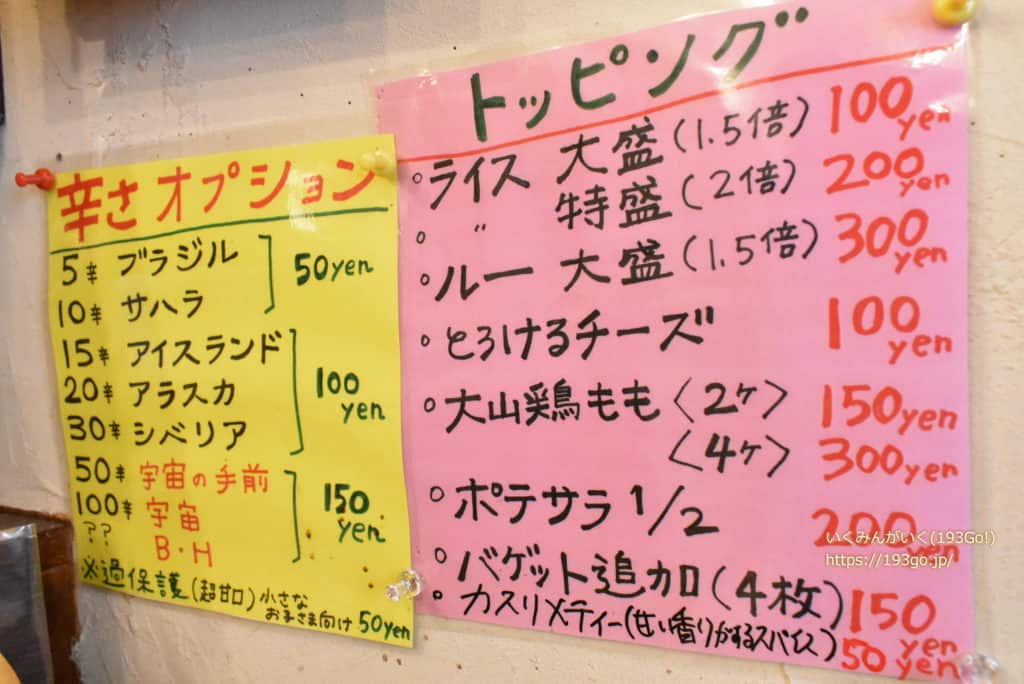 辛さオプション
5辛 ブラジル
10辛 サハラ
50yen
15辛 アイスランド
20辛 アラスカ
30辛 シベリア
100
yen
50辛 宇宙の手前
100辛 宇宙
?? B・H
150
yen
※過保護(超甘口)小さな
お子さま向け 50yen
トッピング
○ライス 大盛(1.5倍) 100yen
○ 〃 特盛(2倍) 200yen
○ルー 大盛(1.5倍) 300yen
○とろけるチーズ 100yen
○大山鶏もも〈2ヶ〉 150yen
〈4ヶ〉 300yen
○ポテサラ 1/2 200yen
○バゲット追加(4枚) 150yen
○カスリメティー(甘い香りがするスパイス) 50yen
いくみんがいく(193Go!)
https://193go.jp/